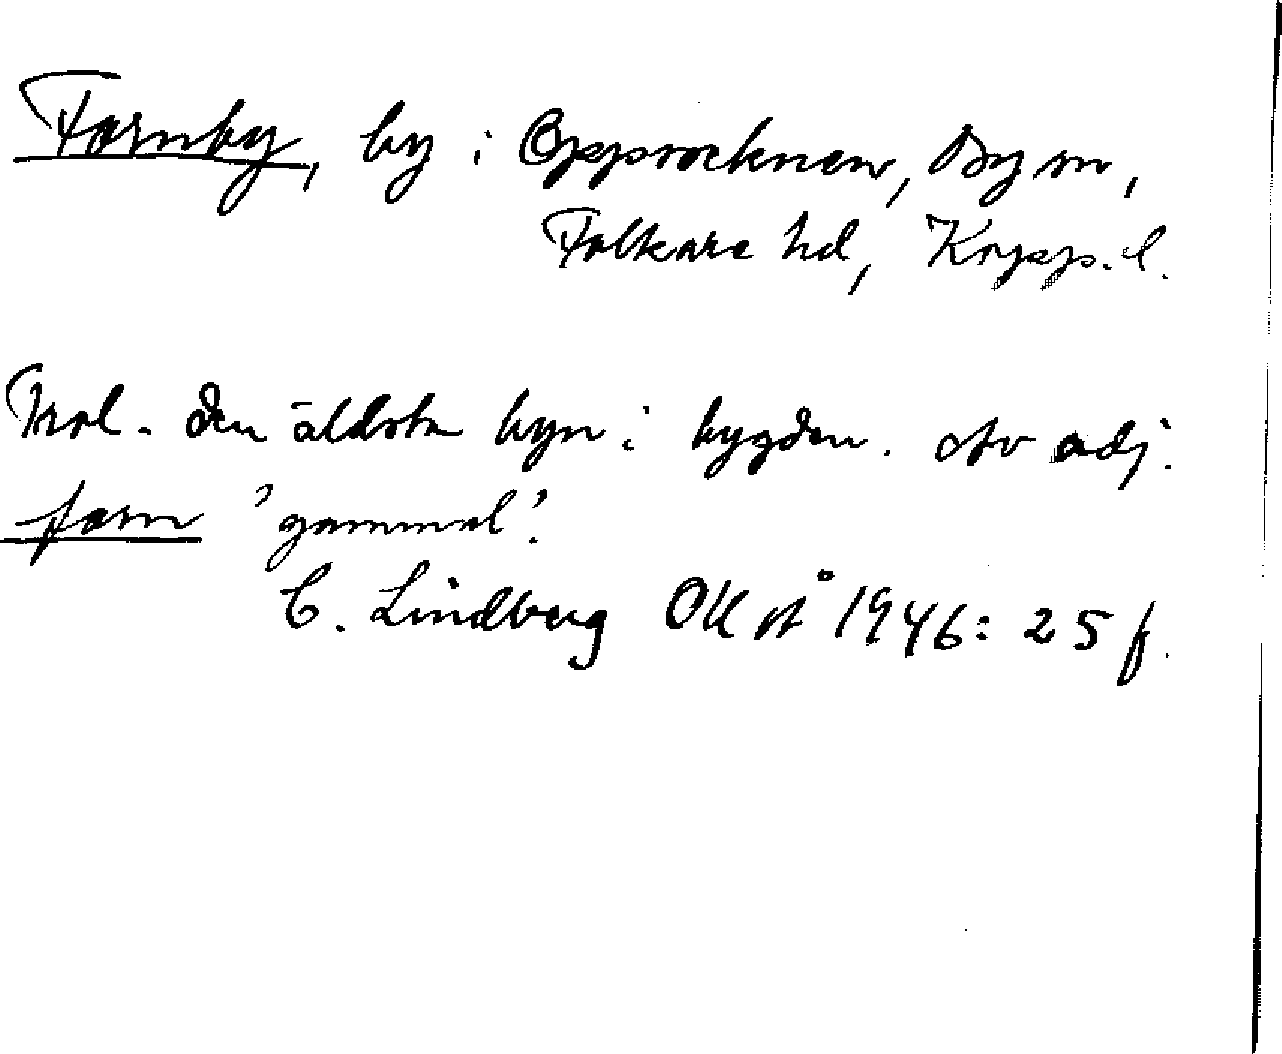 Fornby, by i Opprocknen, By sn,
Folkare hd, Kopp. l.
Mol. den äldsta byn i bygden. Av adj.
forn 'gammal'.
C. Lindberg OUÅ 1946: 25 f.